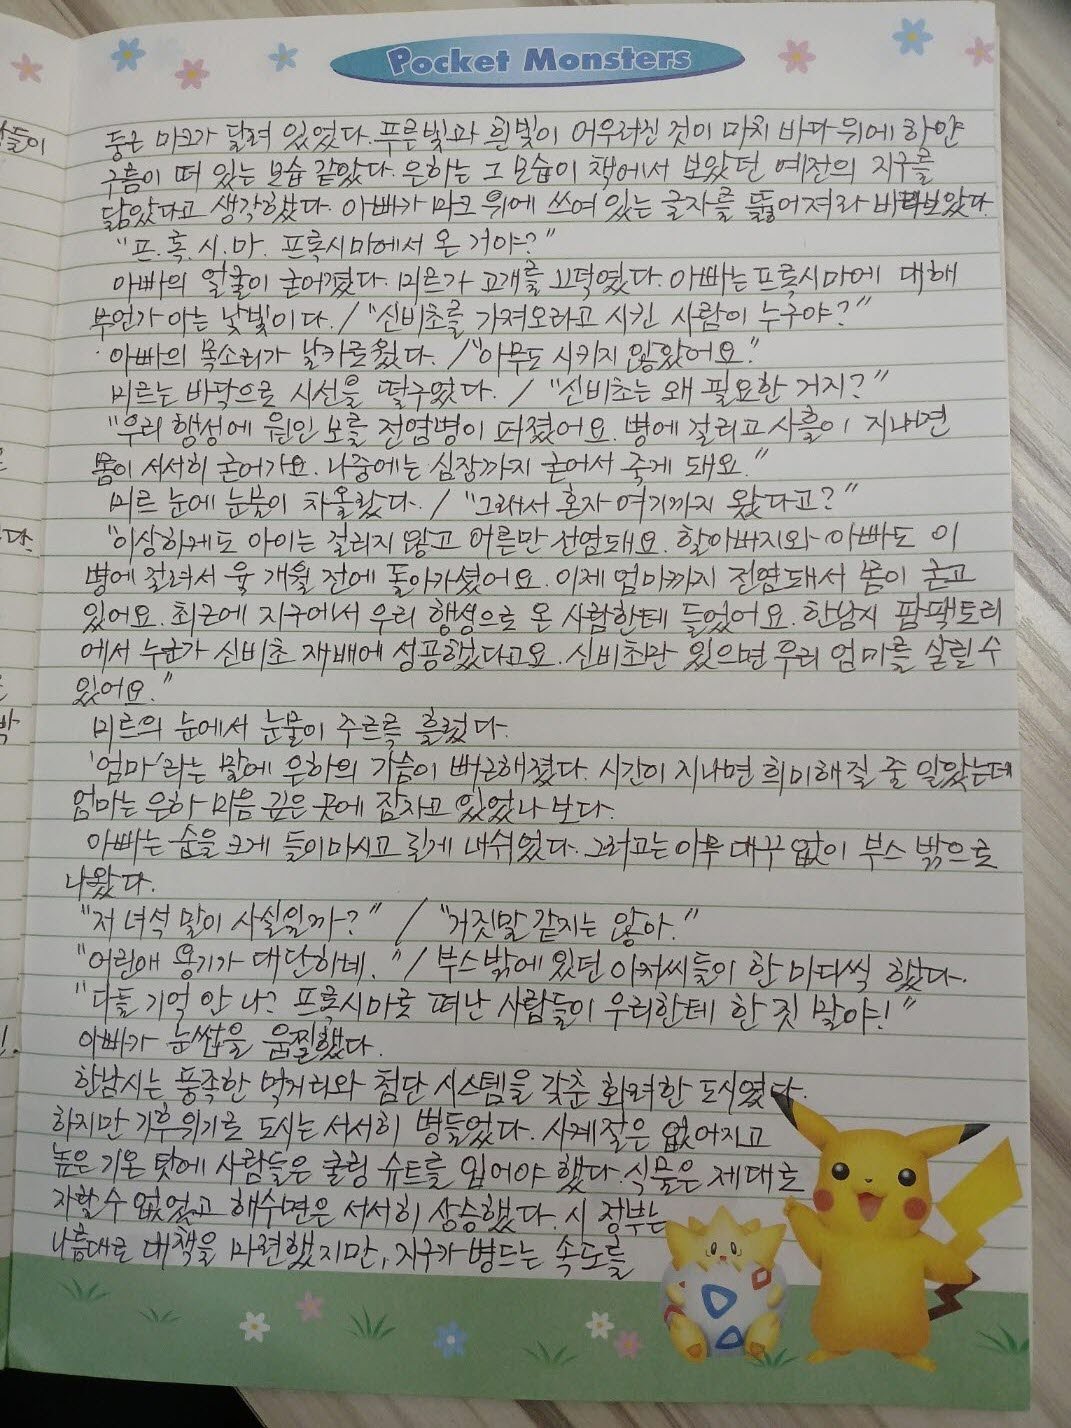 Pocket Monsters
둥근 마크가 달려 있었다. 푸른빛과 흰빛이 어우러진 것이 마치 바다 위에 하얀
구름이 떠 있는 모습 같았다. 은하는 그 모습이 책에서 보았던 예전의 지구를
닮았다고 생각했다. 아빠가 마크 위에 쓰여 있는 글자를 뚫어져라 바라보았다.
"프.록.시.마. 프록시마에서 온 거야?"
아빠의 얼굴이 굳어졌다. 미르가 고개를 끄덕였다. 아빠는 프록시마에 대해
무언가 아는 낯빛이다. / "신비초를 가져오라고 시킨 사람이 누구야?"
아빠의 목소리가 날카로웠다. / "아무도 시키지 않았어요."
미르는 바닥으로 시선을 떨구었다. / "신비초는 왜 필요한 거지?"
"우리 행성에 원인 모를 전염병이 퍼졌어요. 병에 걸리고 사흘이 지나면
몸이 서서히 굳어가요. 나중에는 심장까지 굳어서 죽게 돼요."
미르 눈에 눈물이 차올랐다. / "그래서 혼자 여기까지 왔다고?"
"이상하게도 아이는 걸리지 않고 어른만 전염돼요. 할아버지와 아빠도 이
병에 걸려서 육 개월 전에 돌아가셨어요. 이제 엄마까지 전염돼서 몸이 굳고
있어요. 최근에 지구에서 우리 행성으로 온 사람한테 들었어요. 한남시 팜팩토리
에서 누군가 신비초 재배에 성공했다고요. 신비초만 있으면 우리 엄마를 살릴 수
있어요."
미르의 눈에서 눈물이 주르륵 흘렀다.
'엄마'라는 말에 은하의 가슴이 뻐근해졌다. 시간이 지나면 희미해질 줄 알았는데
엄마는 은하 마음 깊은 곳에 잠자고 있었나 보다.
아빠는 숨을 크게 들이마시고 길게 내쉬었다. 그러고는 아무 대꾸 없이 부스 밖으로
나왔다.
"저 녀석 말이 사실일까?" / "거짓말 같지는 않아."
"어린애 용기가 대단하네." / 부스 밖에 있던 아저씨들이 한 마디씩 했다.
"다들 기억 안 나? 프록시마로 떠난 사람들이 우리한테 한 짓 말야!"
아빠가 눈썹을 움찔했다.
한남시는 풍족한 먹거리와 첨단 시스템을 갖춘 화려한 도시였다.
하지만 기후위기로 도시는 서서히 병들었다. 사계절은 없어지고
높은 기온 탓에 사람들은 쿨링 슈트를 입어야 했다. 식물은 제대로
자랄 수 없었고 해수면은 서서히 상승했다. 시 정부는
나름대로 대책을 마련했지만, 지구가 병드는 속도를